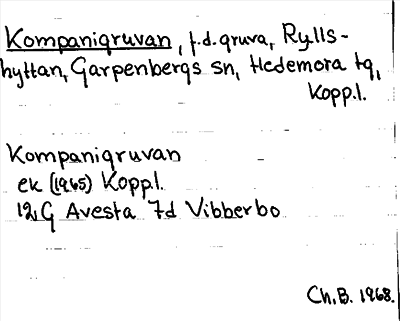 Kompanigruvan, f.d. gruva, Rylls-
hyttan, Garpenbergs sn, Hedemora tg,
Kopp.l.
Kompanigruvan
ek (1965) Kopp.l.
12G Avesta 7d Vibberbo
Ch.B. 1968.